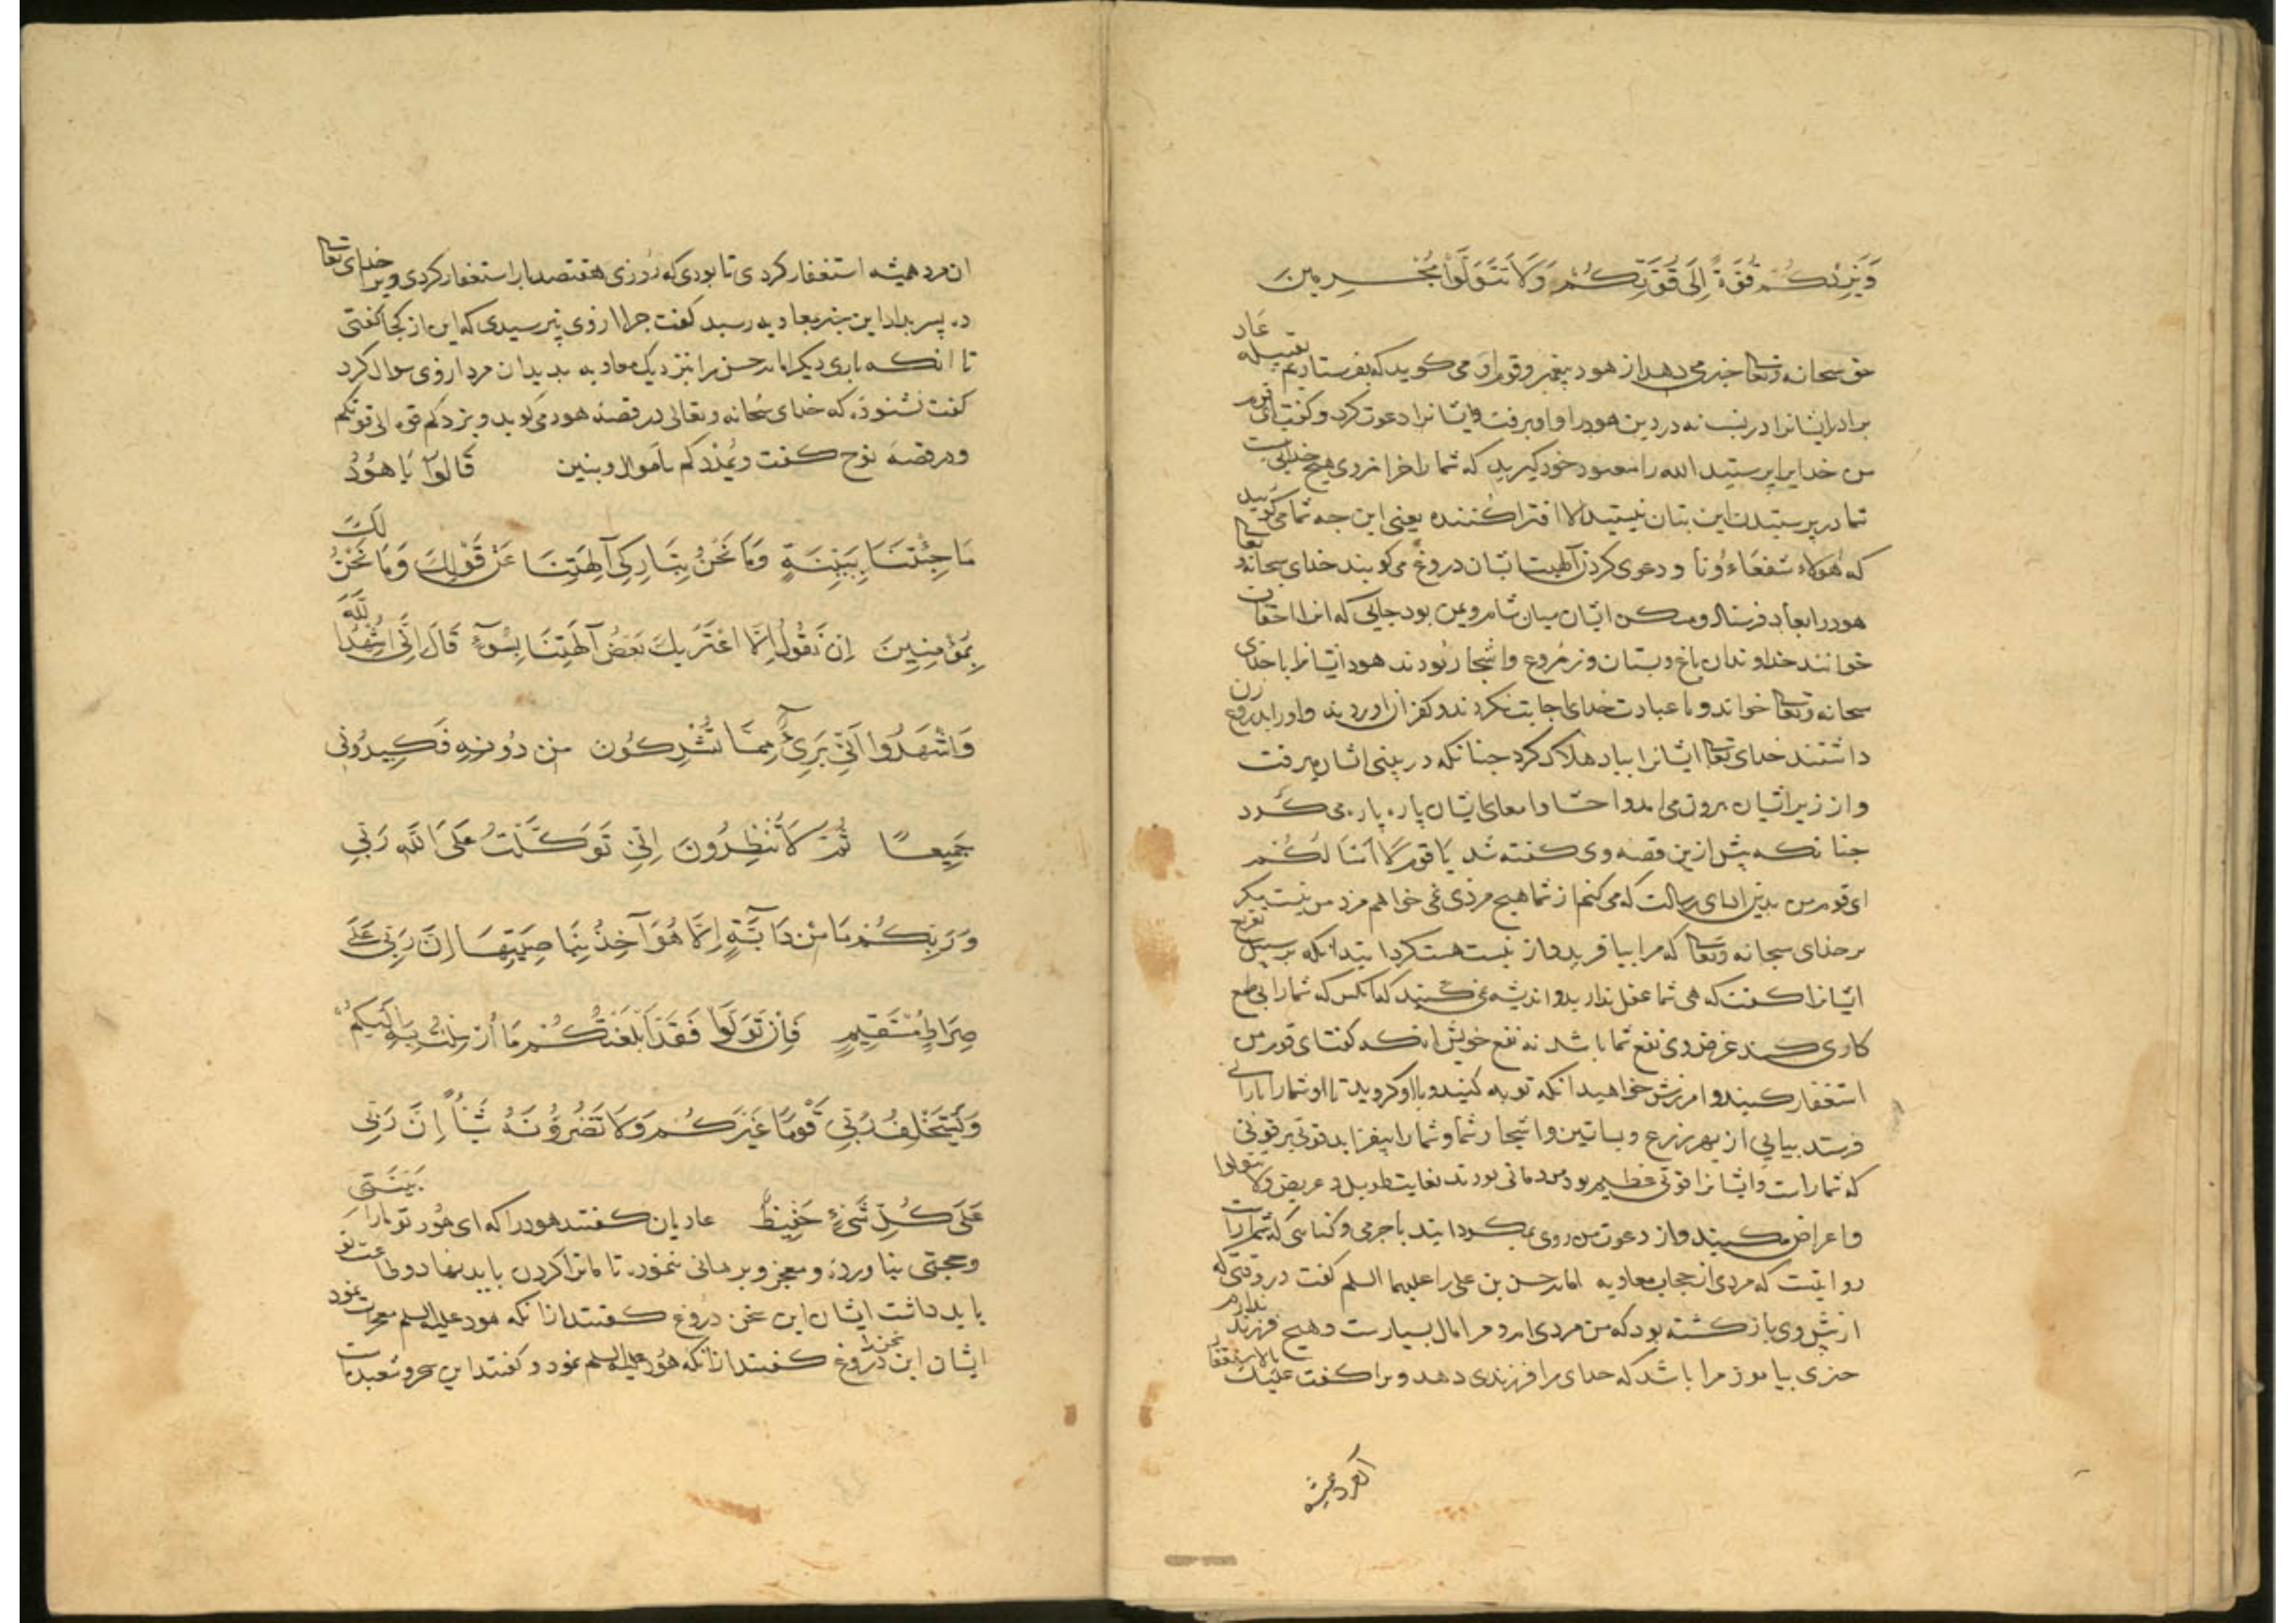 وَيَزِدْكُمْ قُوَّةً إِلَى قُوَّتِكُمْ وَلَا تَتَوَلَّوْا مُجْرِمِينَ
حق سبحانه وتعالی خبر می دهد از هود پیغمبر و قوم او می کوید که بفرستادیم بقبیله عاد
برادر ایشانرا در نسب نه در دین هود را و او برفت و ایشانرا دعوت کرد و کفت ای قوم
من خدایرا پرستید الله را معبود خود کیرید که شما را جز از وی هیچ خدایی نیست
شما در پرستیدن این بتان نیستید الا افترا کننده یعنی این جه شما می کویید
که هؤلاء شفعاءونا و دعوی کردن آلهیت بتان دروغ می کویند خدای سبحانه وتعالی
هود را بعاد فرستاد و مسکن ایشان میان شام و یمن بود جایی که انرا احقاف
خوانند خداوندان باغ و بستان و زروع و اشجار بودند هود ایشانرا با خدای
سبحانه وتعالی خواند و با عبادت خدای اجابت نکردند و کفر آوردند و او را بدروغ زن
داشتند خدای تعالی ایشانرا بباد هلاک کرد جنانکه در بینی ایشان میرفت
و از زیر ایشان برون می امد و احشا و امعای ایشان پاره پاره می کرد
جنانکه پیش ازین قصه وی کفته شد یا قوم لا اسالکم
ای قوم من بدین ادای رسالت که می کنم از شما هیچ مزدی نمی خواهم مزد من نیست مکر
بر خدای سبحانه وتعالی که مرا بیافرید و از نیست هست کردانید انکه بر سبیل تقریع
ایشانرا کفت که هی شما عقل ندارید و اندیشه نمی کنید که انکس که شما را بی طمع
کاری کند غرض وی نفع شما باشد نه نفع خویش انکه کفت ای قوم من
استغفار کنید و امرزش خواهید انکه توبه کنید و با او کروید تا او شما را بارانی
فرستد بیاپی از بهر زرع و بساتین و اشجار شما و شما را بیفزاید قوتی بر قوتی
که شما راست و ایشانرا قوتی عظیم بود مردمانی بودند بغایت طویل و عریض ولا تتولوا
و اعراض مکنید و از دعوت من روی بمکردانید با جرمی و کناهی که شما راست
روایتست که مردی از حجاب معاویه امام حسن بن علی را علیهما السلم کفت در وقتی که
از پیش وی باز کشته بود که من مردی ام و مرا مال بسیارست و هیچ فرزند ندارم
جیزی بیاموز مرا باشد که خدای مرا فرزندی دهد ویرا کفت علیک بالاستغفار
ان مرد همیشه
ان مرد همیشه استغفار کردی تا بودی که روزی هفتصد بار استغفار کردی ویرا خدای تعالی
ده پسر بداد این خبر بمعاویه رسید کفت جرا از وی نپرسیدی که این از کجا کفتی
تا انکه باری دیکر امام حسن را بنزدیک معاویه بدید ان مرد از وی سوال کرد
کفت نشنودی که خدای سبحانه وتعالی در قصه هود می کوید ویزدکم قوة الی قوتکم
و در قصه نوح کفت ویمددکم باموال وبنین قَالُوا يَا هُودُ
مَا جِئْتَنَا بِبَيِّنَةٍ وَمَا نَحْنُ بِتَارِكِي آلِهَتِنَا عَنْ قَوْلِكَ وَمَا نَحْنُ لَكَ
بِمُؤْمِنِينَ إِن نَّقُولُ إِلَّا اعْتَرَيكَ بَعْضُ آلِهَتِنَا بِسُوءٍ قَالَ إِنِّي أُشْهِدُ اللَّهَ
وَاشْهَدُوا أَنِّي بَرِيءٌ مِمَّا تُشْرِكُونَ مِن دُونِهِ فَكِيدُونِي
جَمِيعًا ثُمَّ لَا تُنْظِرُونَ إِنِّي تَوَكَّلْتُ عَلَى اللَّهِ رَبِّي
وَرَبِّكُمْ مَا مِنْ دَابَّةٍ إِلَّا هُوَ آخِذٌ بِنَاصِيَتِهَا إِنَّ رَبِّي عَلَى
صِرَاطٍ مُسْتَقِيمٍ فَإِنْ تَوَلَّوْا فَقَدْ أَبْلَغْتُكُمْ مَا أُرْسِلْتُ بِهِ إِلَيْكُمْ
وَيَسْتَخْلِفُ رَبِّي قَوْمًا غَيْرَكُمْ وَلَا تَضُرُّونَهُ شَيْئًا إِنَّ رَبِّي
عَلَى كُلِّ شَيْءٍ حَفِيظٌ عادیان کفتند هود را که ای هود تو ما را بینتی
و حجتی نیاوردی و معجز و برهانی ننمودی تا ما ترا کردن باید نهاد و طاعت تو
باید داشت ایشان این سخن دروغ کفتند از انکه هود علیه السلم معجزات نمود
ایشان این سخن را دروغ کفتند از انکه هود علیه السلم نمود و کفتند این سحر و شعبده است